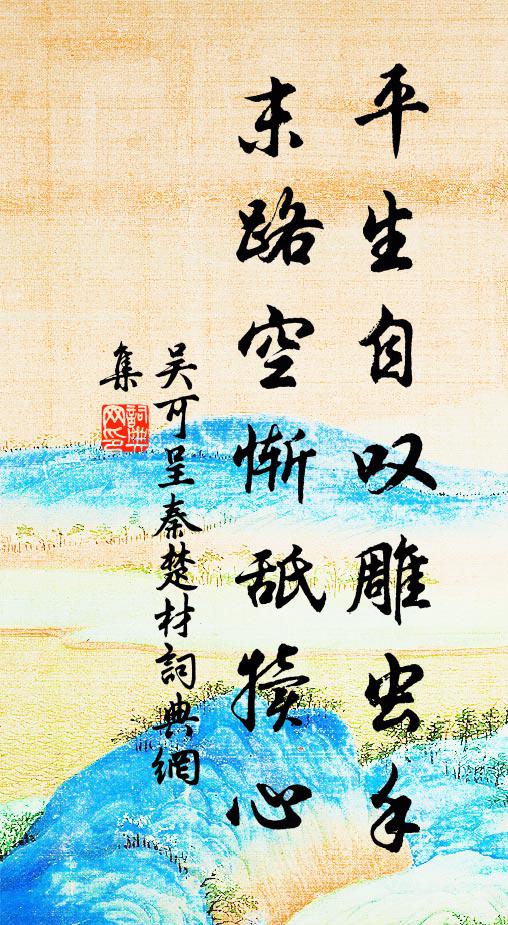 平生自叹雕虫手
末路空慚舐犢心
吴可呈秦楚材詞典網
集
詞典
网印